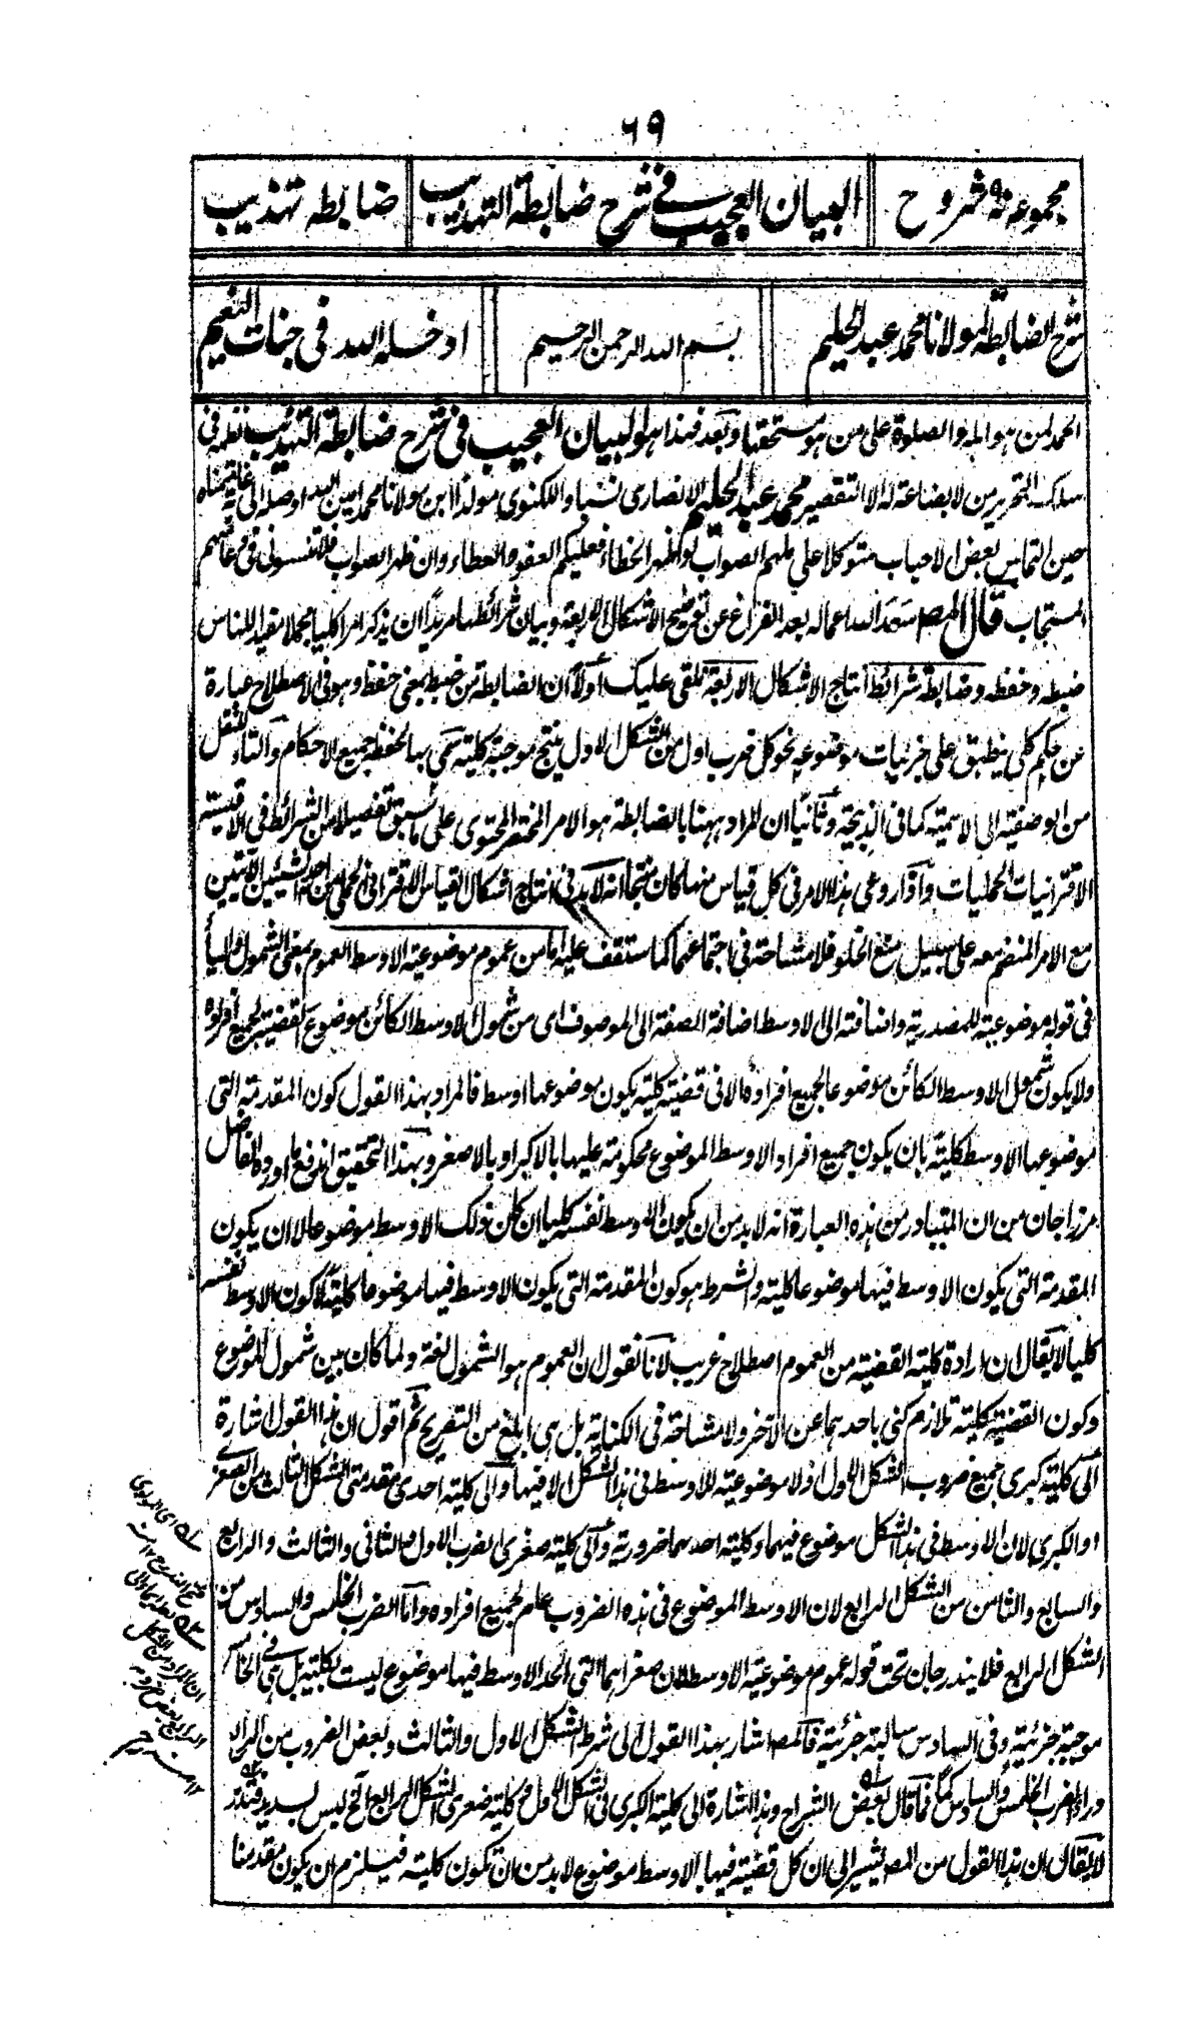 ٦٩
مجموعه شروح
البيان العجيب في شرح ضابطة التهذيب
ضابطه تهذيب
شرح الضابطة لمولانا محمد عبد الحليم
بسم الله الرحمن الرحيم
ادخله الله فى جنات النعيم
الحمد لمن هو اهله والصلوة على من هو مستحقها وبعد فهذا هو البيان العجيب فى شرح ضابطة التهذيب نظمه فى
سلك التحرير من لا بضاعة له الا التقصير محمد عبد الحليم الانصارى نسبا واللكنوى مولدا ابن مولانا محمد امين الله اوصله الى غاية متمناه
حين التماس بعض الاحباب متوكلا على ملهم الصواب لو اظهر الخطاء فعليكم العفو والعطاء وان ظهر الصواب فلا تنسونى فى دعائكم
المستجاب قال المصـ سعد الله اعماله بعد الفراغ عن توضيح الاشكال الاربعة وبيان شرائطها مريدا ان يذكر امرا كليا مجملا مفيد اللناس
ضبطه وحفظه وضابطة شرائط انتاج الاشكال الاربعة نلقى عليك اولا ان الضابطة من ضبط بمعنى حفظ وهو فى الاصطلاح عبارة
عن حكم كلى ينطبق على جزئيات موضوعه نحو كل ضرب اول من الشكل الاول ينتج موجبة كلية سمى بها لحفظه جميع الاحكام والتاء للنقل
من الوصفية الى الاسمية كما فى الذبيحة وثانيا ان المراد ههنا بالضابطة هو الامر المختصر المحتوى على ما سبق تفصيلا من الشرائط فى الاقيسة
الاقترانيات الحمليات واذا روعى هذا الامر فى كل قياس منها كان منتجا انه لا بد فى انتاج اشكال القياس الاقترانى الحملى من احد الشيئين الآتيين
مع الامر المنضم معه على سبيل منع الخلو فلا مشاحة فى اجتماعهما كما ستقف عليه اما من عموم موضوعية الاوسط العموم بمعنى الشمول والياء
فى قوله موضوعية للمصدرية واضافته الى الاوسط اضافة الصفة الى الموصوف اى من شمول الاوسط الكائن موضوع القضية لجميع افراده
ولا يكون شمول الاوسط الكائن موضوعا لجميع افراده الا فى قضية كلية يكون موضوعها اوسط فالمراد بهذا القول كون المقدمة التى
موضوعها الاوسط كلية بان يكون جميع افراد الاوسط الموضوع محكومة عليها بالاكبر او بالاصغر وبهذا التحقيق اندفع ما اورده الفاضل
مرزا جان من ان المتبادر من هذه العبارة انه لا بد من ان يكون الاوسط نفسه كليا ان كان ذلك الاوسط موضوعا لا ان يكون
المقدمة التى يكون الاوسط فيها موضوعا كلية والشرط هو كون المقدمة التى يكون الاوسط فيها موضوعا كلية لا كون الاوسط نفسه
كليا لا يقال ان ارادة كلية القضية من العموم اصطلاح غريب لانا نقول ان العموم هو الشمول لغة ولما كان بين شمول الموضوع
وكون القضية كلية تلازم كنى باحدهما عن الآخر ولا مشاحة فى الكناية بل هى ابلغ من التصريح ثم اقول ان هذا القول اشارة
الى كلية كبرى جميع ضروب الشكل الاول اذ لا موضوعية للاوسط فى هذا الشكل الا فيها والى كلية احدى مقدمتى الشكل الثالث من الصغرى
او الكبرى لان الاوسط فى هذا الشكل موضوع فيهما وكلية احدهما ضرورية والى كلية صغرى الضرب الاول والثانى والثالث والرابع
والسابع والثامن من الشكل الرابع لان الاوسط الموضوع فى هذه الضروب عام لجميع افراده واما الضرب الخامس والسادس من
الشكل الرابع فلا يندرجان تحت قوله عموم موضوعية الاوسط لان صغراهما التى الحد الاوسط فيها موضوع ليست بكلية بل هى فى الخامس
موجبة جزئية وفى السادس سالبة جزئية فالمصـ اشار بهذا القول الى شرط الشكل الاول والثالث وبعض الضروب من الرابع
وراء الضرب الخامس والسادس كما قال بعض الشراح وهذا اشارة الى كلية الكبرى فى الشكل الاول وكلية صغرى الشكل الرابع الخ ليس بسديد فتدبر
لا يقال ان هذا القول من المصـ يشير الى ان كل قضية فيها الاوسط موضوع لا بد من ان تكون كلية فيلزم ان يكون مقدمتا